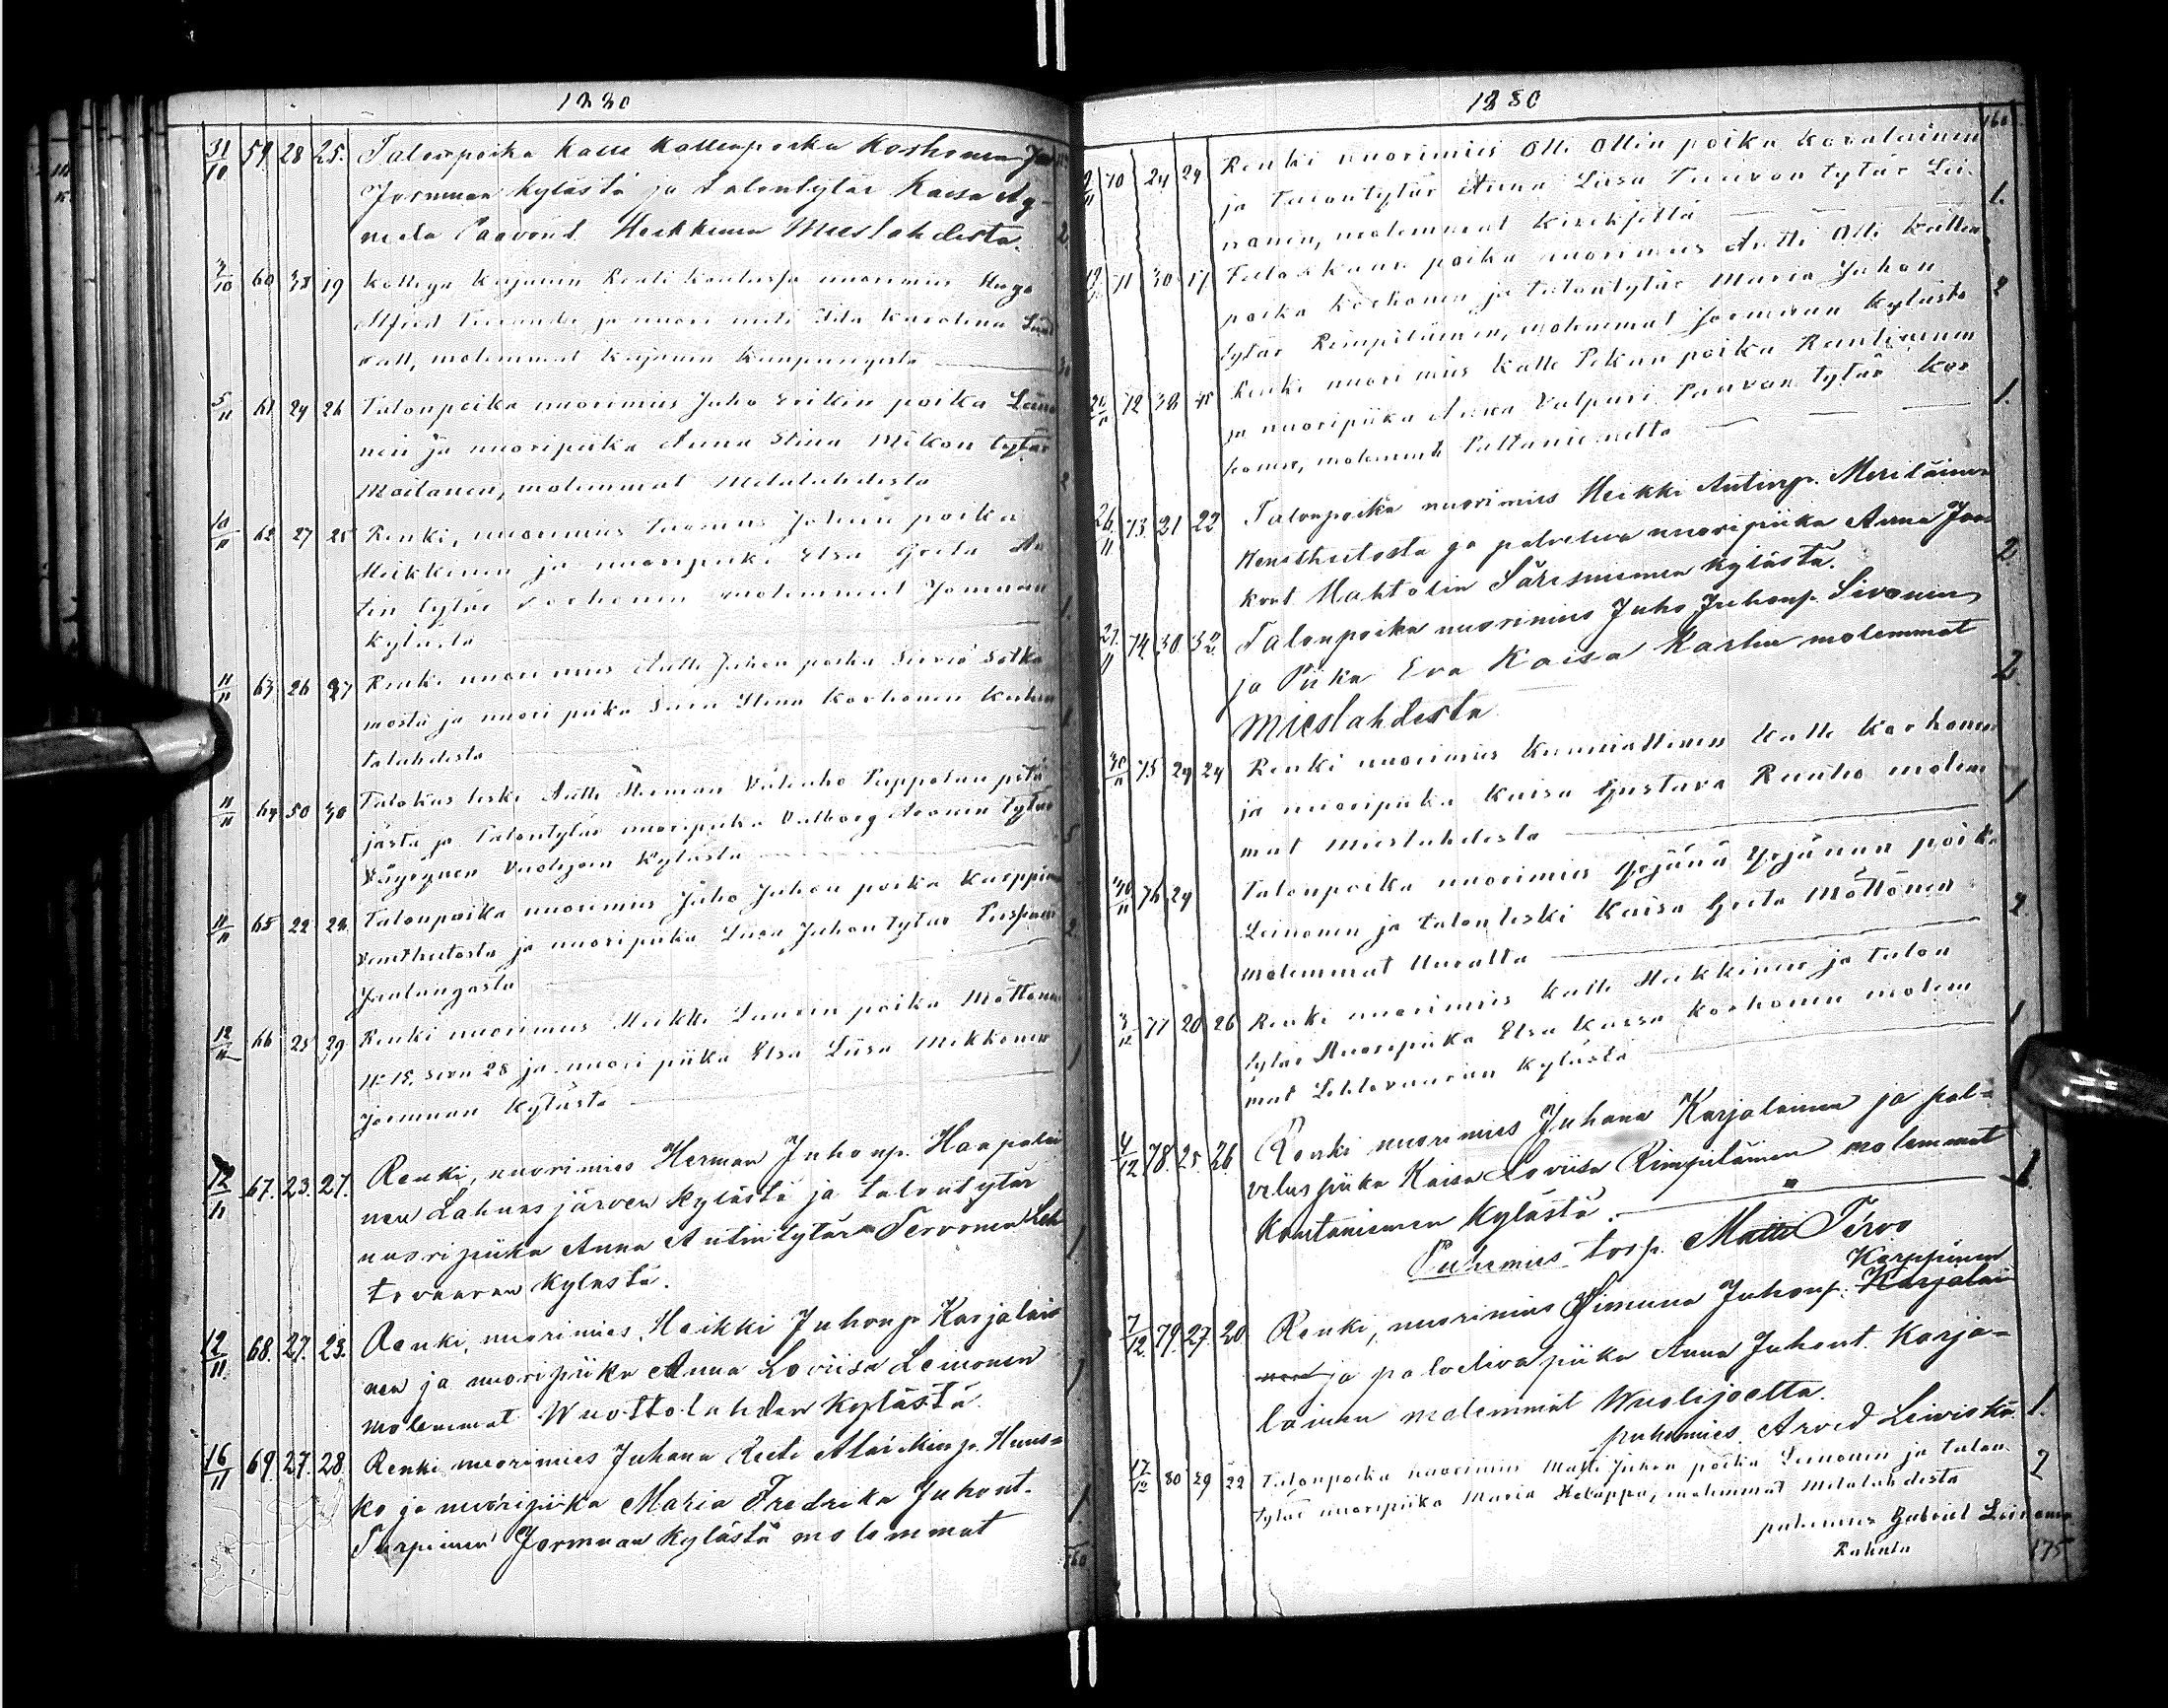 1880
31/10 59. 28 25. Talonpoika Kalle Kallenpoika Korhonen
Jormuan kylästä ja talontytär Kaisa Ag-
neda Paavont. Heikkinen Mieslahdesta. 2
3/10 60 38 19 Kollega Kajanin nuorimies Hugo
Alfred ja nuori neiti Ida Karolina
molemmat Kajanin kaupungista
5/11 61 24 26 Talonpoika nuorimies Juho Erikin poika Leino
nen ja nuoripiika Anna Stina Mikon tytär
Moilanen, molemmat Melalahdesta 2
10/11 62 27 25 Renki, nuorimies Tuomas Johan poika
Heikkinen ja nuoripiika Elsa Greta An
tin tytär Korhonen molemmat Jormuan
kylästä 1.
11/11 63 26 27 Renki nuorimies Antti Juhon poika Sirviö Sotka
mosta ja nuori piika Stina Korhonen
talahdesta
11/11 64 50 30 Talokas leski Antti Herman Pappolan pitä
jästä ja Talontytär nuoripiika Valborg Aronin tytär
Väyrynen Vuolijoen kylästä 5
11/11 65 22 22 Talonpoika nuorimies Juho Juhon poika Karppinen
Veneheitosta ja nuoripiika Liisa Juhon tytär
2
12/11 66 25 29 Renki nuorimies Heikki Laurin poika Möttönen
N:o 15. sivu 28 ja nuori piika Elsa Liisa Mikkonen
Jormuan kylästä 1
12/11 67. 23. 27. Renki, nuorimies Herman Juhonp. Haapalai
nen Lahnasjärven kylästä ja talontytär
nuoripiika Anna Antintytär Tervonen Leh
tovaaran kylästä. 1
12/11 68. 27. 23. Renki, nuorimies Heikki Juhonp. Karjalai
nen ja nuoripiika Anna Loviisa Leinonen
molemmat Wuottolahden kylästä. 1
16/11 69. 27. 28. Renki nuorimies Juhana Heusk=
ko ja nuoripiika Maria Fredrika Juhont.
Turpeinen Jormuan kylästä molemmat 1
160
1880
160
9/11 70 24 24 Renki nuorimies Olli Ollin poika Kovalainen
ja Talontytär Anna Liisa Paavon tytär Lei-
nonen, molemmat 1.
71 30 17 Talokkaan poika nuorimies Antti Olli Kallen
poika Korhonen ja talontytär Maria Juhon
tytär Rimpiläinen, molemmat Jormuan kylästä 2
20/11 72 38 45 Renki nuorimies Kalle Pekan poika Rautiainen
ja nuoripiika Anna Valpuri Paavon tytär Kor
honen, molemmat Paltaniemeltä 1.
26/11 73. 21 22 Talonpoika nuorimies Heikki Antinp. Meriläinen
Veneheitosta ja palveleva nuoripiika Anna Joa
kont. Mahtolin Säresniemen kylästä. 2
27/11 74. 30. 32. Talonpoika nuorimies Juho Juhonp. Sivonen
ja Piika Eva Kaisa Karhu molemmat
Mieslahdesta 2.
30/11 75 24 24 Renki nuorimies Kunniallinen Kalle Korhonen
ja nuoripiika Kaisa Gustava Ruuho molem
mat Mieslahdesta 1
30/11 76 24 Talonpoika nuorimies Yrjänä Yrjänän poika
Leinonen ja talonleski Kaisa Greta Möttönen
molemmat Uuralta 2
3/12 77 20 26 Renki nuorimies Kalle Heikkinen ja talon
tytär Nuoripiika Elsa Kaisa Korhonen molem
mat Lehtovaaran kylästä 1
4/12 78. 25. 26. Renki nuorimies Juhana Karjalainen ja pal=
veluspiika Kaisa Loviisa Rimpiläinen molemmat
Kontaniemen kylästä. 1.
Puhemies torp. Matti Tervo
Karppinen
7/12. 79. 27. 20 Renki, nuorimies Simuna Juhonp. Karjalai
nen ja palveleva piika Anna Juhont. Karja=
lainen molemmat Wuolijoelta. 1.
puhemies. Arved Leiviskä
17/12 80 29 22 Talonpoika nuorimies Matti Juhon poika Leinonen ja talon
tytär nuoripiika Maria Keloppu, molemmat Melalahdesta 2
puhemies Gabriel Leinonen
Rahala
175